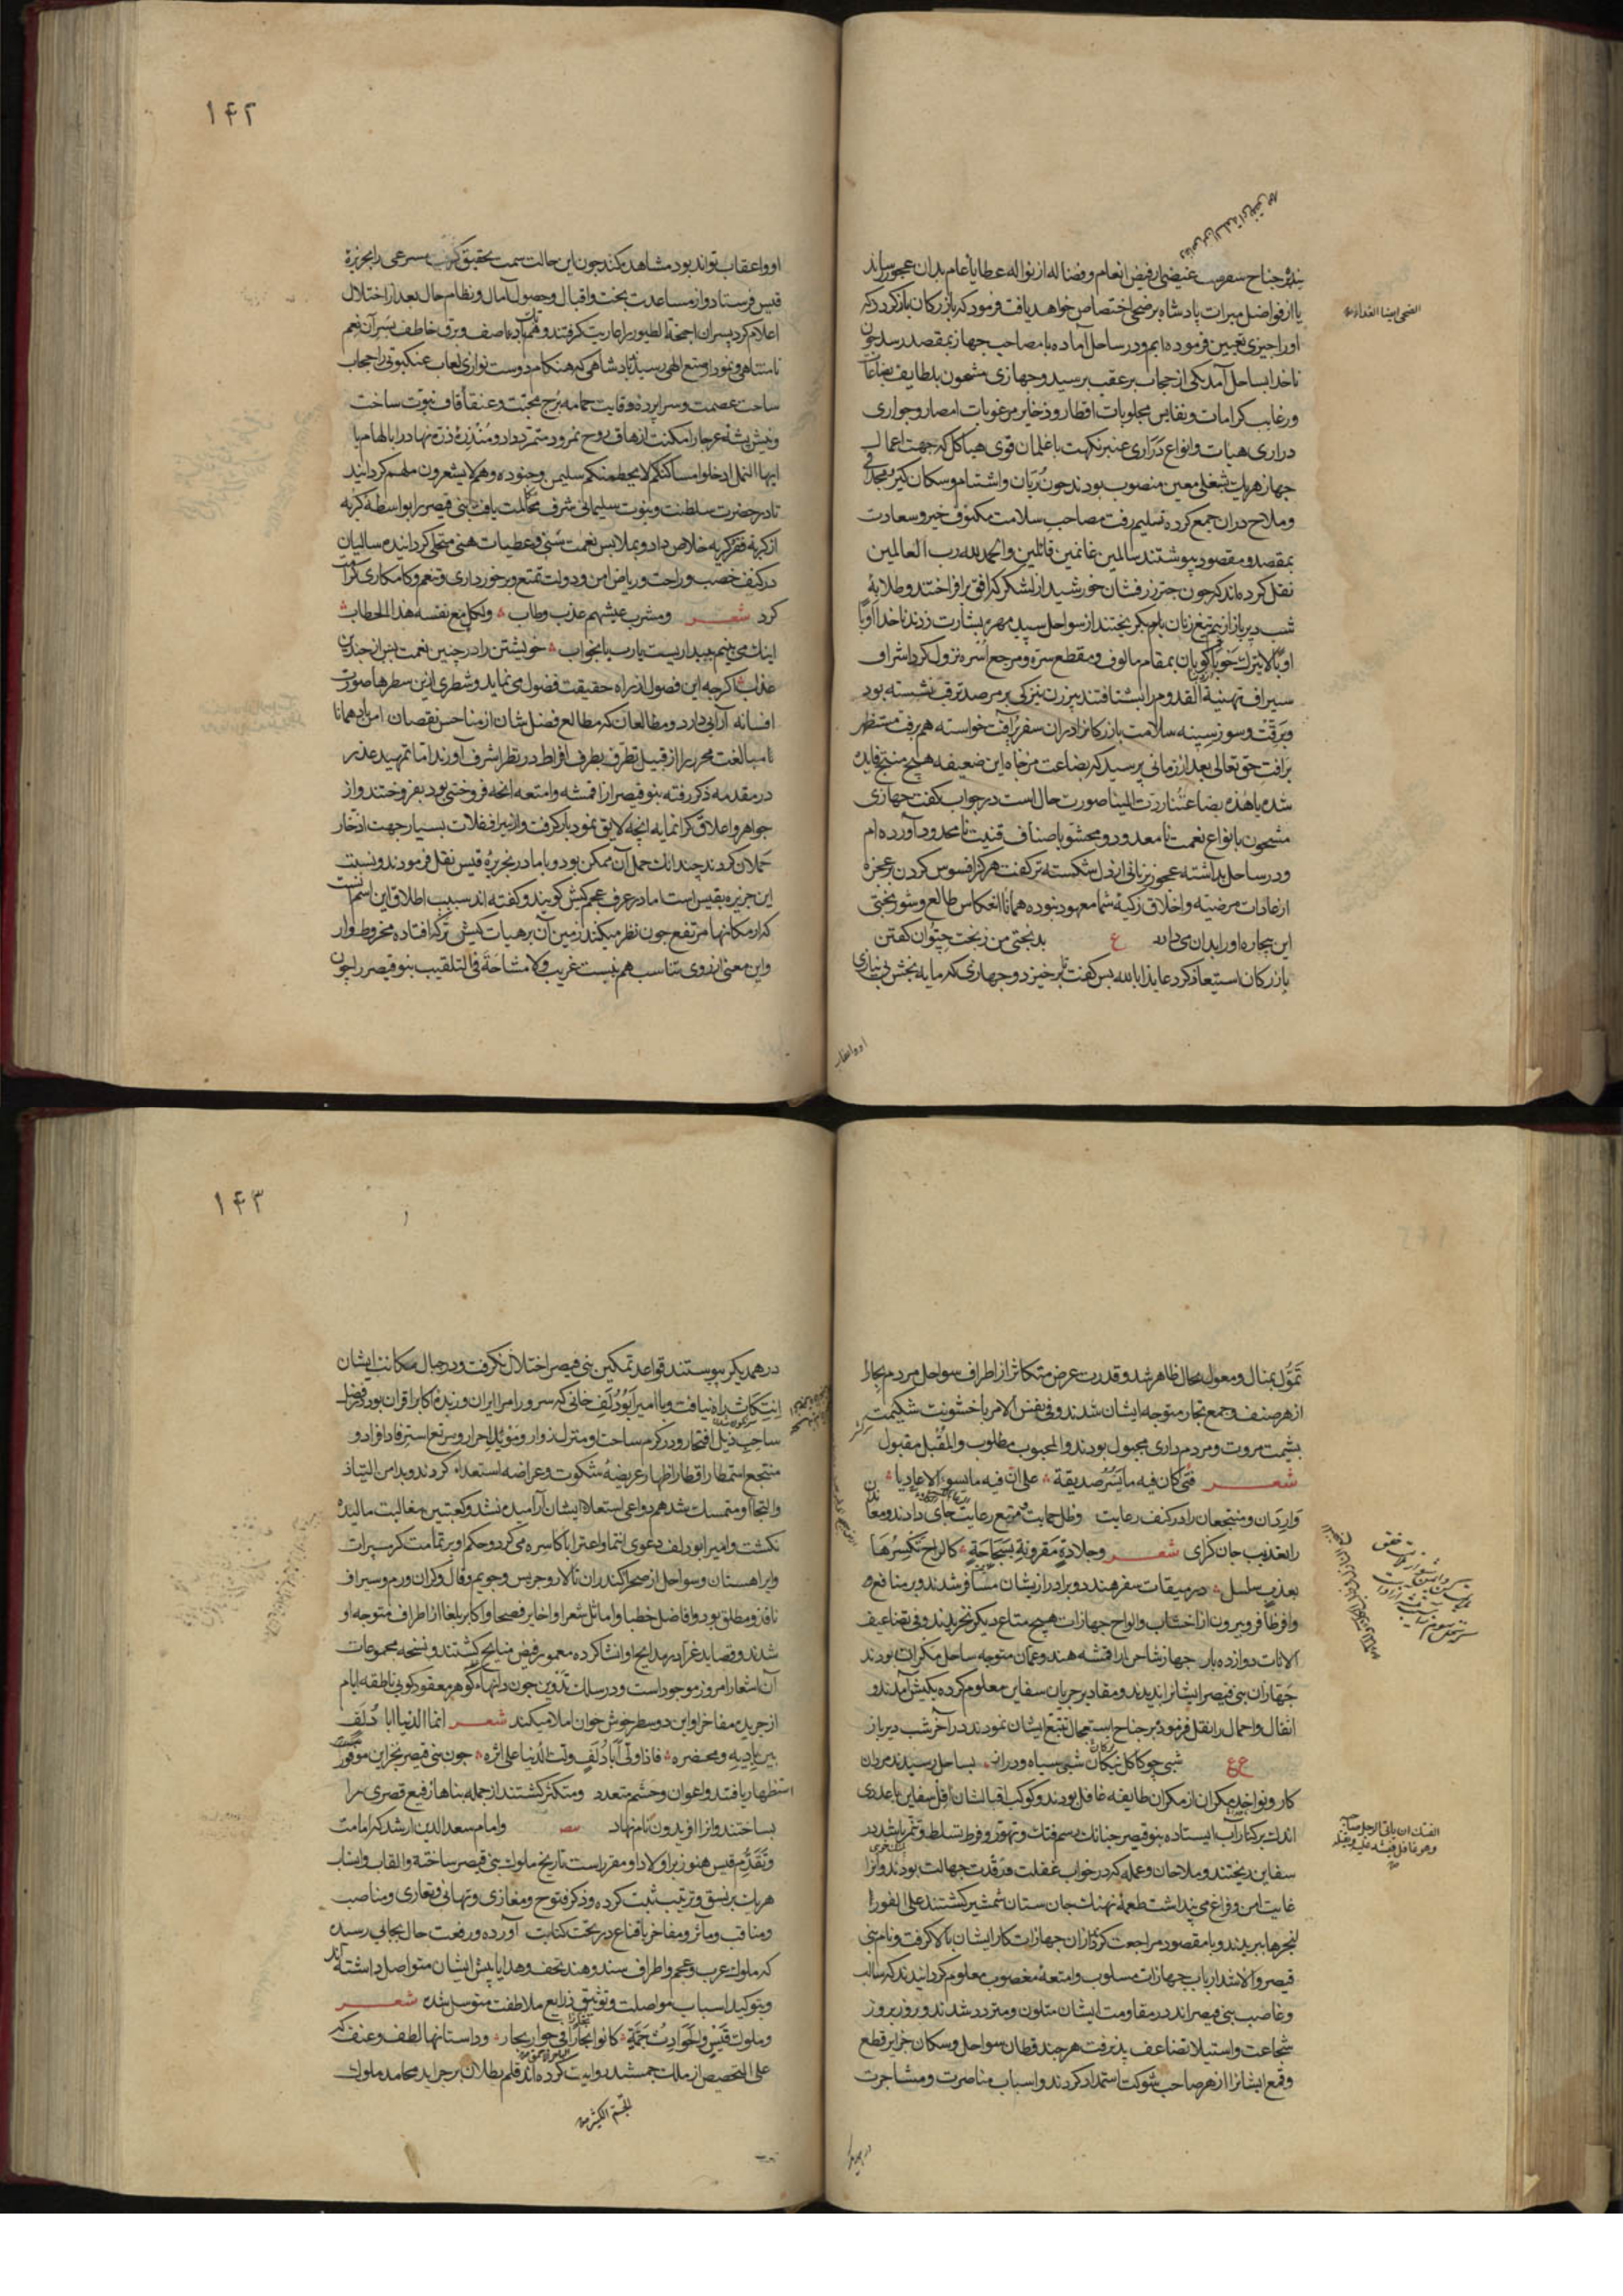 بذله جناح سفر عنیضی از فیض انعام و فضاله از نواله عطایاء عام بدان عجوز رساند
یا از فواضل میراث پادشاه برضخی اختصاص خواهد یافت فرمود که بازرکان باز کردد که
او را چیزی تعیین فرموده ایم و در ساحل آماده با مصاحب جهاز بمقصد رسد چون
ناخدا بساحل آمد یکی از حجاب بر عقب برسید و جهازی مشحون بلطایف بضاعات
و رغایب کرامات و نفایس مجلوبات اقطار و ذخایر مرغوبات امصار و جواری
دراری هیات و انواع ذراری عنبر نکهت با غلمان قوی هیاکل که جهت اعمال
جهاز هر یک بشغلی معین منصوب بودند چون رُبّان و اشتیام و سکان کیر و مجدافی
و ملاح دران جمع کرده تسلیم رفت مصاحب سلامت مکنوف خیر و سعادت
بمقصد و مقصود پیوستند سالمین غانمین قائلین والحمد لله رب العالمین
نقل کرده اند که چون چتر زرفشان خورشید از لشکر که افق برافراختند و طلایۀ
شب دیرباز از بیم تیغ زنان بام بکریختند از سواحل سپید مهرۀ بشارت زدند ناخدا
بمقام مالوف و مقطع سره و مرجع اسره نزول کرد اشراف
سیراف تهنیة القدوم را بشتافتند پیرزن نیز کی بر مرصد ترقب نشسته بود
و برقت و سوز سینه سلامت بازرکانرا دران سفر پر آفت خواسته هم برفت مستظهر
برافت حق تعالی بعد از زمانی پرسید که بضاعت مزجاه این ضعیفه هیچ منتج فایده
شده یا هذه بضاعتنا ردت الینا صورت حال است در جواب کفت جهازی
مشحون بانواع نعمت نامعدود و محشو باصناف قنیت نامحدود آورده ام
و در ساحل بداشته عجوز بزبانی از دل شکسته تر کفت هرکز افسوس کردن بر عجزه
از عادات مرضیه و اخلاق زکیۀ شما معهود نبوده همانا انعکاس طالع و شور بختی
این بیچاره او را بدان می دارد ع بدبختی من ز بخت چتوان کفتن
بازرکان استیعاذ کرد عایذا بالله پس کفت برخیزد و جهازی که مایه بخش بی نیازی
۱۴۲
او و اعقاب تواند بود مشاهده کند چون این حالت سمت تحقیق کرفت مسرعی را بجزیرۀ
قیس فرستاد و از مساعدت بخت و اقبال و حصول آمال و نظام حال بعد از اختلال
اعلام کرد پسران اجنحة الطیور را عاریت کرفتند و هم تک باد عاصف و برق خاطف بسر آن نعم
نامتناهی و نمودار صنع الهی رسید پادشاهی که هنکام دوست نوازی لعاب عنکبوتی را حجاب
ساحت عصمت و سراپردۀ وقایت حمامه برج محبت و عنقاء قاف نبوت ساخت
و نیش پشه عرجا را مکنت ازهاق روح نمرود متمرد داد و منذرۀ ذره نهاد را بالهام یا
ایها النمل ادخلوا مساکنکم لا یحطمنکم سلیمن و جنوده و هم لا یشعرون ملهم کردانید
تا در حضرت سلطنت و نبوت سلیمانی شرف مکالمت یافت بنی قیصر را بواسطه کربه
از کربۀ فقر کربه خلاص داد و بملابس نعمت سنی و عطیات هنی متحلی کردانیده سالیان
در کنف خصب و راحت و ریاض امن و دولت تمتع و برخورداری و تنعم و کامکاری کرامت
کرد شعر ومشرب عیشهم عذب وطاب ولکل مع نفسه هذا الخطاب
اینک می بینم ببیداریست یا رب یا بخواب خویشتن را در چنین نعمت پس از چندین
عذاب اکرچه این فصول از راه حقیقت فضول می نماید و شطری ازین سطرها صورت
افسانه آرایی دارد و مطالعان که مطالع فضل شان از مناحس نقصان امن باد همانا
نامبالغت محرر را از قبیل تطرف بطرف افراط در نظر اشرف آورند اما تمهید عذر
در مقدمه ذکر رفته بنو قیصر از اقمشه و امتعه انچه فروختنی بود بفروختند و از
جواهر و اعلاق کرانمایه انچه لایق نمود بار کرفت و از سیراف فلات بسیار جهت ادخار
حملان کردند چندانک حمل آن ممکن بود و با مادر بجزیرۀ قیس نقل فرمودند و نسبت
این جزیره بقیس است اما در عرف عجم کیش کویند و کفته اند سبب اطلاق این اسم آنست
که از مکانها مرتفع چون نظر میکنند زمین آن بر هیات کیش ترکه افتاده مخروط وار
و این معنی از روی تناسب هم نیست غریب ولا مشاحة فی التلقیب بنو قیصر را چون
تموّل بمنال و معول بحال ظاهر شد و قدرت عرض متکاثر از اطراف سواحل مردم بحار
از هر صنف و جمع تجار متوجه ایشان شدند و فی نفس الامر با خشونت شکیمت
بشیمت مروت و مردم داری مجبول بودند والمحبوب مطلوب والمقبل مقبول
شعر فتی کان فیه ما یسر صدیقه علی ان فیه ما یسوء الاعادیا
واردان و منتجعان را در کنف رعایت و ظل حمایت و مرتع رعایت جای دادند و معاندان
را بعذیب جان کزای شعر وجلادة مقرونة بسجاحة کالراح تکسرها
بعذب سلسل در میقات سفر هند دو برادر ازیشان مسافر شدند و بر منافع
وافر ظافر و بیرون از اخشاب و الواح جهازات هیچ متاع دیکر نخریدند و فی تضاعیف
الاثات دوازده باره جهاز شاحن از اقمشه هند و عمان متوجه ساحل مکران بودند
جهازان بنی قیصر ایشانرا بدیدند و مقادیر جریان سفاین معلوم کرده بکیش آمدند و
اثقال و احمال را نقل فرموده بر جناح استعجال تتبع ایشان نمودند در آخر شب دیرباز
ع شبی چو کاکل تنکان شبی سیاه و دراز بساحل رسیدند مردان
کار و نواخذه مکران از مکران طایفه غافل بودند و کوکب اقبالشان آفل سفاین با عددی
اندک بر کنار آب ایستاده بنو قیصر چنانک رسم فتک و تهور و فرط تسلط و تنمر باشد در
سفاین ریختند و ملاحان و عمله که در خواب غفلت و رقدت جهالت بودند و انرا
غایت امن و فراغ می پنداشت طعمۀ نهنک جان ستان شمشیر کشتند علی الفور
لنجرها ببریدند و با مقصود مراجعت کردند ازان جهازات کار ایشان بالا کرفت و نام بنی
قیصر والا شد ارباب جهازات مسلوب و امتعۀ مغصوب معلوم کردانیدند که سالب
و غاصب بنی قیصر اند در مقاومت ایشان متلون و متردد شدند و روز بروز
شجاعت و استیلا تضاعف پذیرفت هرچند قطان سواحل و سکان جزایر قطع
و قمع ایشانرا از هر صاحب شوکت استمداد کردند و اسباب مناصرت و مشاجرت
۱۴۳
در همدیکر پیوستند قواعد تمکین بنی قیصر اختلال نکرفت و در حبال مکانت ایشان
انتکاث راه نیافت و با امیر ابودلف خانی که سرور امرا ایران و زبدۀ اکابر اقران بود و فضل
ساحب ذیل افتخار و در کرم ساحت او منزل زوار و موئل احرار و مرتع استرفاد افواد و
منتجع استمطار اقطار اظهار عریضۀ شکوت و عراضه استعداء کردند و بدامن التیاذ
والتجا او متمسک شد هم دواعی استعلاء ایشان آرامیده نشد و کعبتین مغالبت مالیده
نکشت و امیر ابودلف دعوی انتما و اعتزا باکاسره می کرد و حکم او بر تمامت کرمسیرات
و ایراهستان و سواحل از صحرا کندران تا لار و جریس و جویم و فال و کران ورم و سیراف
نافذ و مطلق بود و افاضل خطبا و اماثل شعرا و اخایر فصحا و اکابر بلغا از اطراف متوجه او
شدند و قصاید غرا در مدایح او انشا کرده مغمور فیض منایح کشتند و نسخه مجموعات
آن اشعار امروز موجود است و در سلک تدوین چون دانهاء کوهر معقود کویی ناطقه ایام
از جریده مفاخر او این دو سطر خوش خوان املا میکند شعر انما الدنیا ابا دلف
بین بادیه ومحضره فاذا ولی ابا دلف ولت الدنیا علی اثره چون بنی قیصر بخزاین موفور
استظهار یافتند و اعوان و حشم متعدد و متکثر کشتند از جمله بناها رفیع قصری را
بساختند و انرا افریدون نام نهاد و امام سعد الدین ارشد که امامت
و تقدم قیس هنوز بر اولاد او مقرر است تاریخ ملوک بنی قیصر ساخته و القاب و انساب
هریک بر نسق و ترتیب ثبت کرده و ذکر فتوح و مغازی و تهانی و تعازی و مناصب
و مناقب و مآثر و مفاخر باقناع در تحت کتابت آورده و رفعت حال بجایی رسیده
که ملوک عرب و عجم و اطراف سند و هند تحف و هدایا پیش ایشان متواصل داشته اند
و بتوکید اسباب مواصلت و توثیق ذرایع ملاطفت متوسل شده شعر
وملوک قیس والحوادث جمة کانوا بحارا فی جوار بحار و داستانها لطف و عنف که
علی التخصیص از ملک جمشید روایت کرده اند قلم بطلان بر جراید محامد ملوک